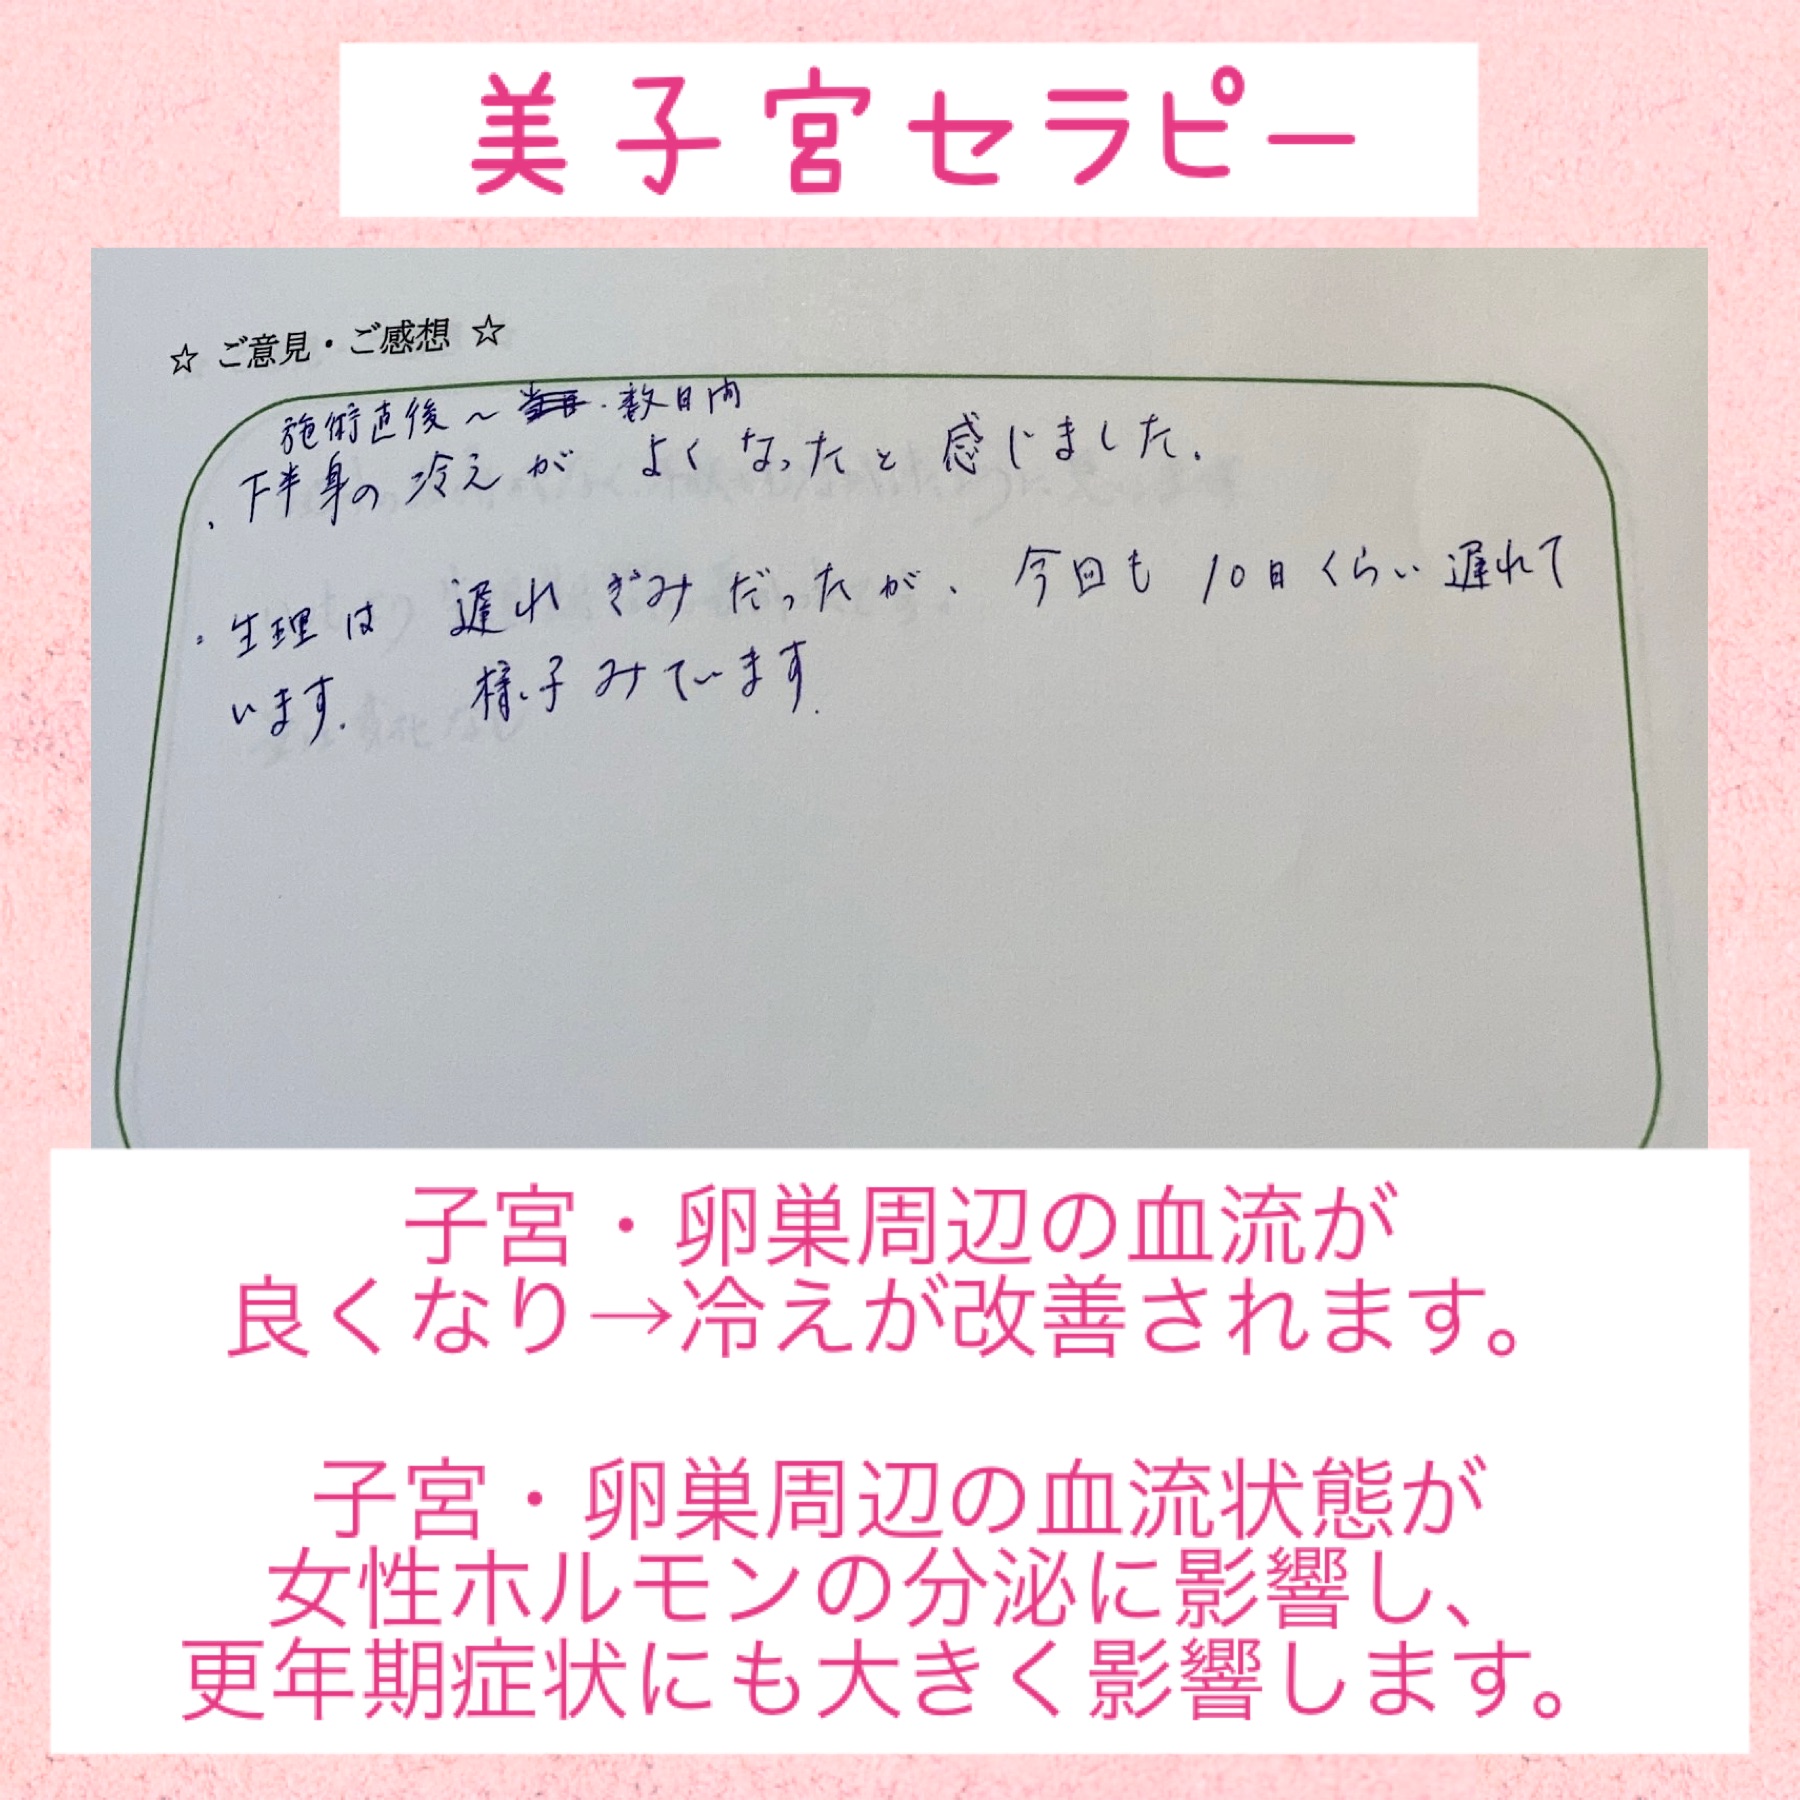 美子宮セラピー
☆ ご意見・ご感想 ☆
施術直後～ 数日内
・下半身の冷えが よくなったと感じました.
・生理は 遅れぎみだったが、今回も 10日くらい遅れて
います. 様子みています.
子宮・卵巣周辺の血流が
良くなり→冷えが改善されます。
子宮・卵巣周辺の血流状態が
女性ホルモンの分泌に影響し、
更年期症状にも大きく影響します。